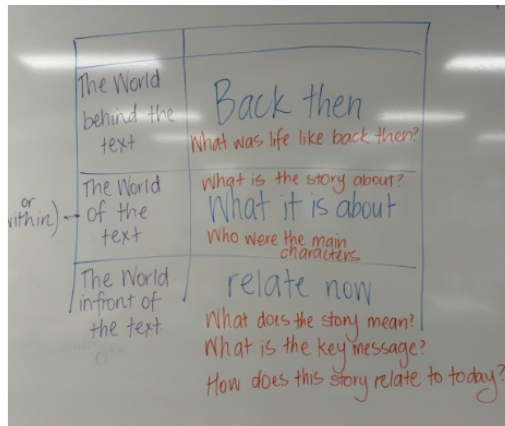 The World
behind the
text
Back then
What was life like back then?
or
within)
The World
of the
text
What is the story about?
What it is about
Who were the main
characters
The World
infront of
the text
relate now
What does the story mean?
What is the key message?
How does this story relate to today?